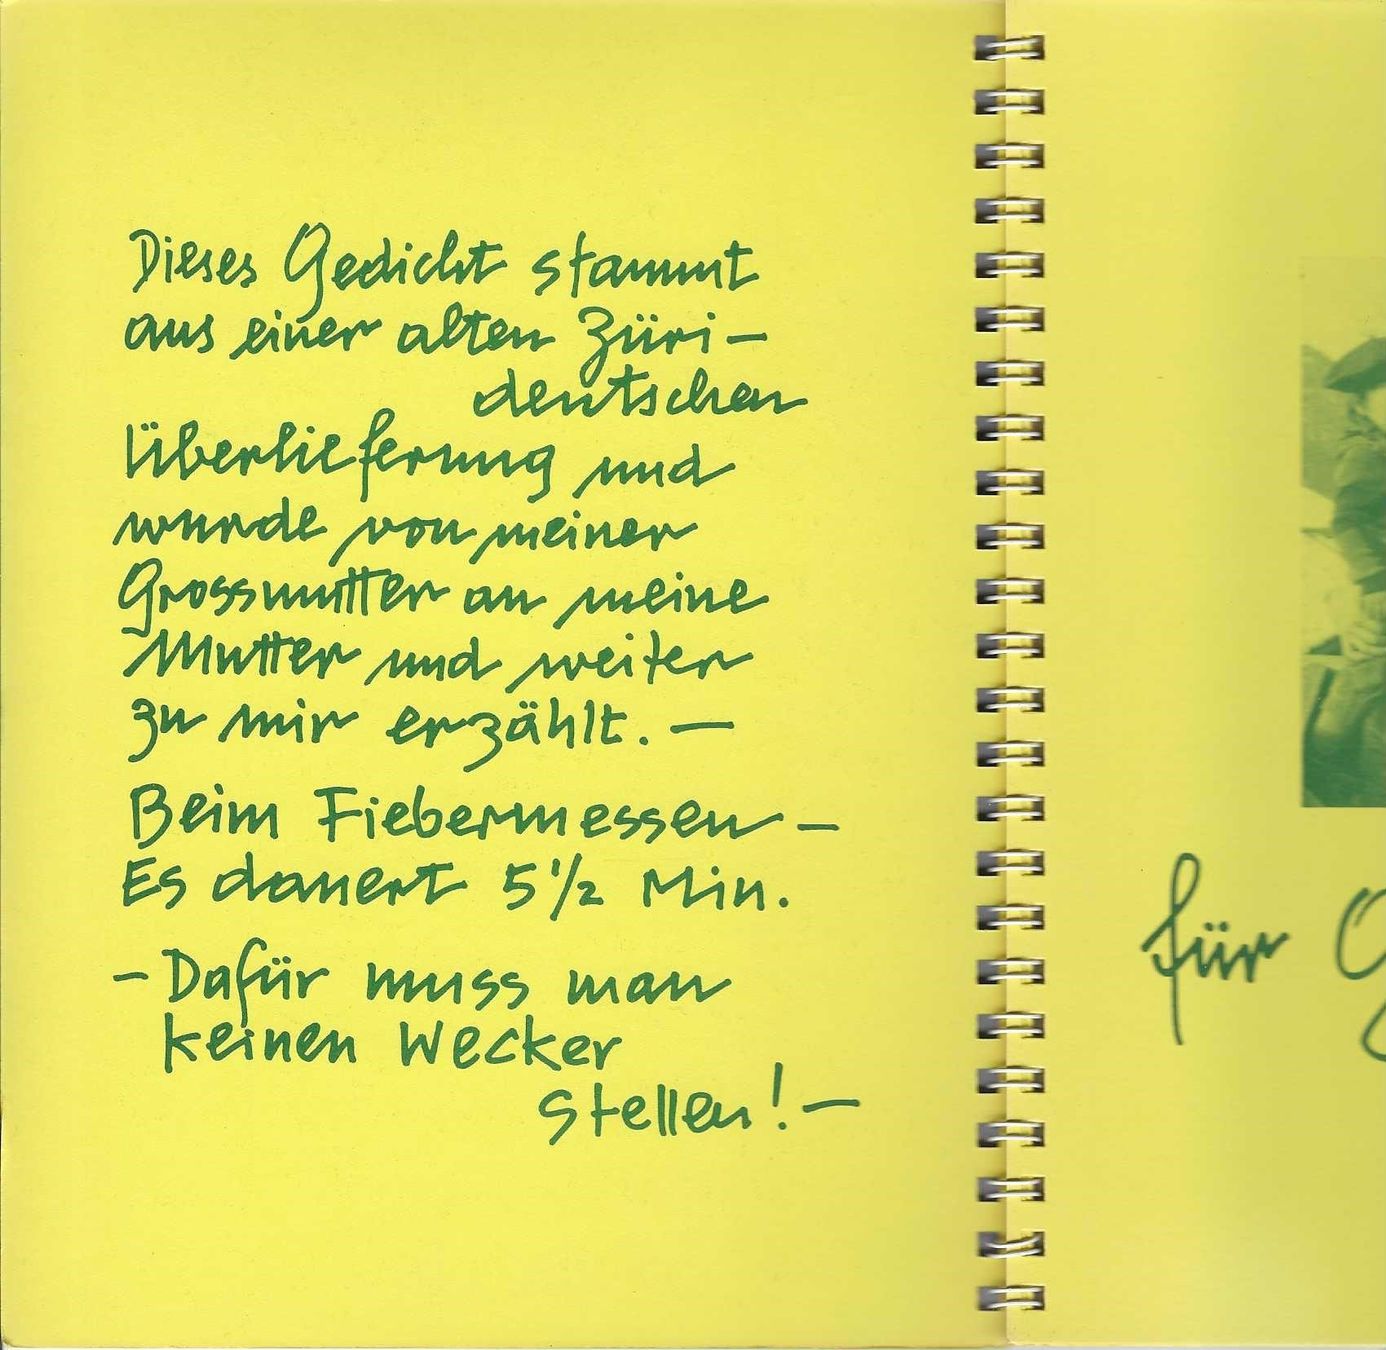 Dieses Gedicht stammt
aus einer alten Züri–
deutschen
Überlieferung und
wurde von meiner
Grossmutter an meine
Mutter und weiter
zu mir erzählt. –
Beim Fiebermessen –
Es dauert 5 1/2 Min.
– Dafür muss man
keinen Wecker
stellen! –
für